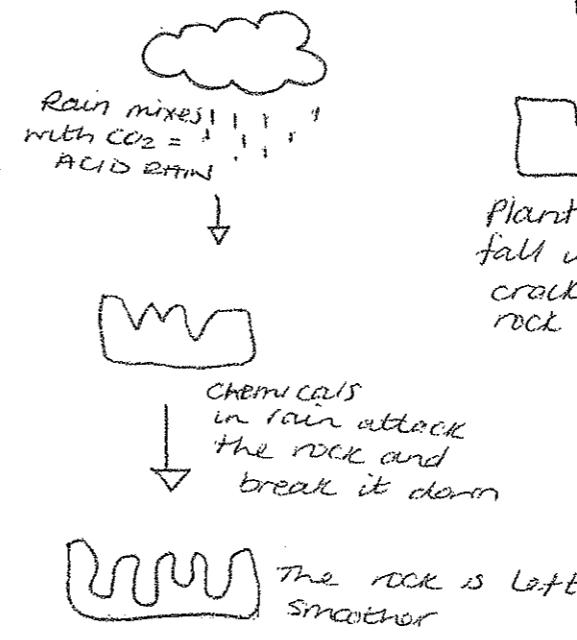 Rain mixes
with CO2 =
ACID RAIN
Plant
fall
crack
rock
chemicals
in rain attack
the rock and
break it down
The rock is left
smoother